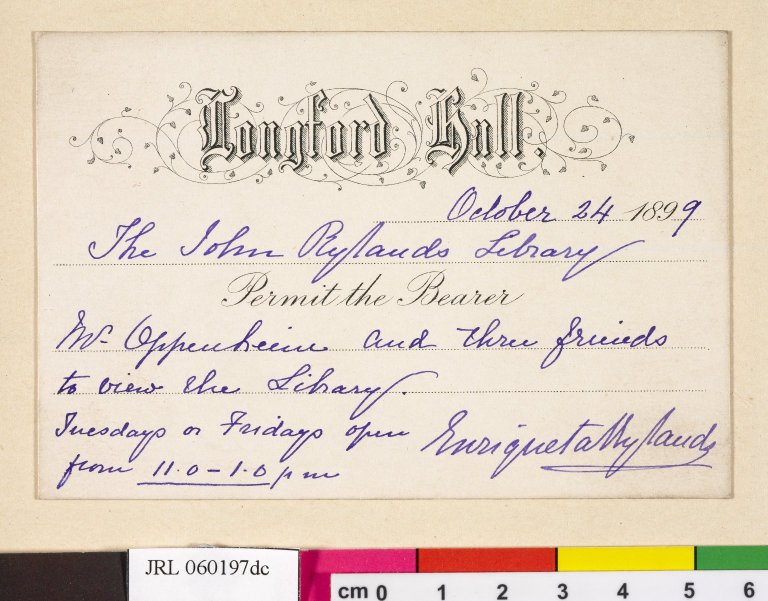 Longford Hall.
October 24 1899
The John Rylands Library
Permit the Bearer
Mr Oppenheim and three friends
to view the Library.
Tuesdays or Fridays open
from 11.0-1.0 pm
Enriqueta Rylands
JRL 060197dc
cm 0 1 2 3 4 5 6